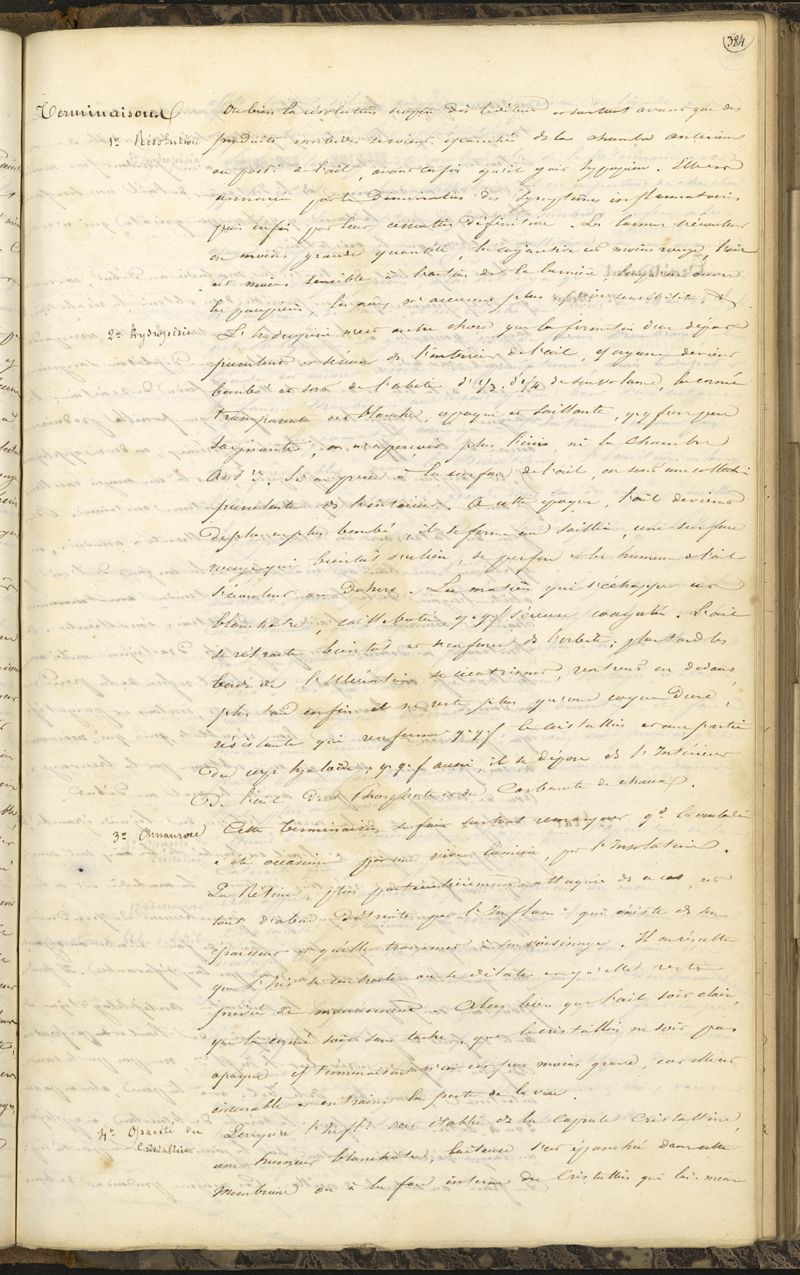 384
Terminaisons
1º Résolution
Ou bien la résolution dès le début et surtout avant que des
produits morbides épanchés de la chambre antérieure
ou post. de l'œil, avant enfin qu'il y ait hypopion. Elle est
annoncée par la diminution des symptômes inflammatoires
puis enfin par leur cessation définitive. Les larmes s'écoulent
en moins grande quantité, la conjonctive est moins rouge, l'œil
est moins sensible à l'action de la lumière,
les paupières, plus sensibilité, &.
2º Hydropisie
L'hydropisie n'est autre chose que la formation d'un dépôt
purulent et séreux de l'intérieur de l'œil, ayant devient
bombé et sort de l'orbite d'1/3, d'1/4 de son volume, la cornée
transparente est blanche, opaque et saillante, q.q.f. un peu
saignante, on n'aperçoit plus l'iris, ni la chambre
Antre. Si on presse à la surface de l'œil, on sent une collection
purulente de l'intérieur. A cette époque, l'œil devient
de plus en plus bombé, il se forme une saillie, une surface
rouge qui bientôt s'ulcère, se perfore et les humeurs de l'œil
s'écoulent au dehors. La matière qui s'échappe est
blanchâtre, caillebotée, q.q.f. séreuse, coagulée. L'œil
se rétracte bientôt et s'enfonce de l'orbite; plus tard les
bords de l'ulcération se cicatrisent, rentrent en dedans,
plus tard enfin il ne reste plus qu'une coque dure,
résistante qui renferme q.q.f. le cristallin et une partie
du corps hyaloïde, q.q.f. aussi, il se dépose de l'Intérieur
de l'œil du Phosphate et du Carbonate de chaux.
3º Amaurose
Cette terminaison se fait surtout remarquer qd. la maladie
a été occasionnée par une vive lumière, par l'Insolation.
La Rétine, plus particulièrement attaquée de ce cas, est
tout d'abord détruite par l'Inflamon qui existe de son
épaisseur et qu'elle transmet à son voisinage. Il en résulte
que l'Iris se contracte ou se dilate et qu'elle reste
privée de mouvement. Alors bien que l'œil soit clair,
que la cornée soit sans tache, que le cristallin ne soit pas
opaque, cette terminaison n'en est pas moins grave, car elle est
incurable et entraîne la perte de la vue.
4º Opacité du
Cristallin
Lorsque l'Inflon s'est établie de la capsule Cristalline,
une humeur blanchâtre, laiteuse s'est épanchée dans cette
membrane ou à la face interne du Cristallin qui lui-même